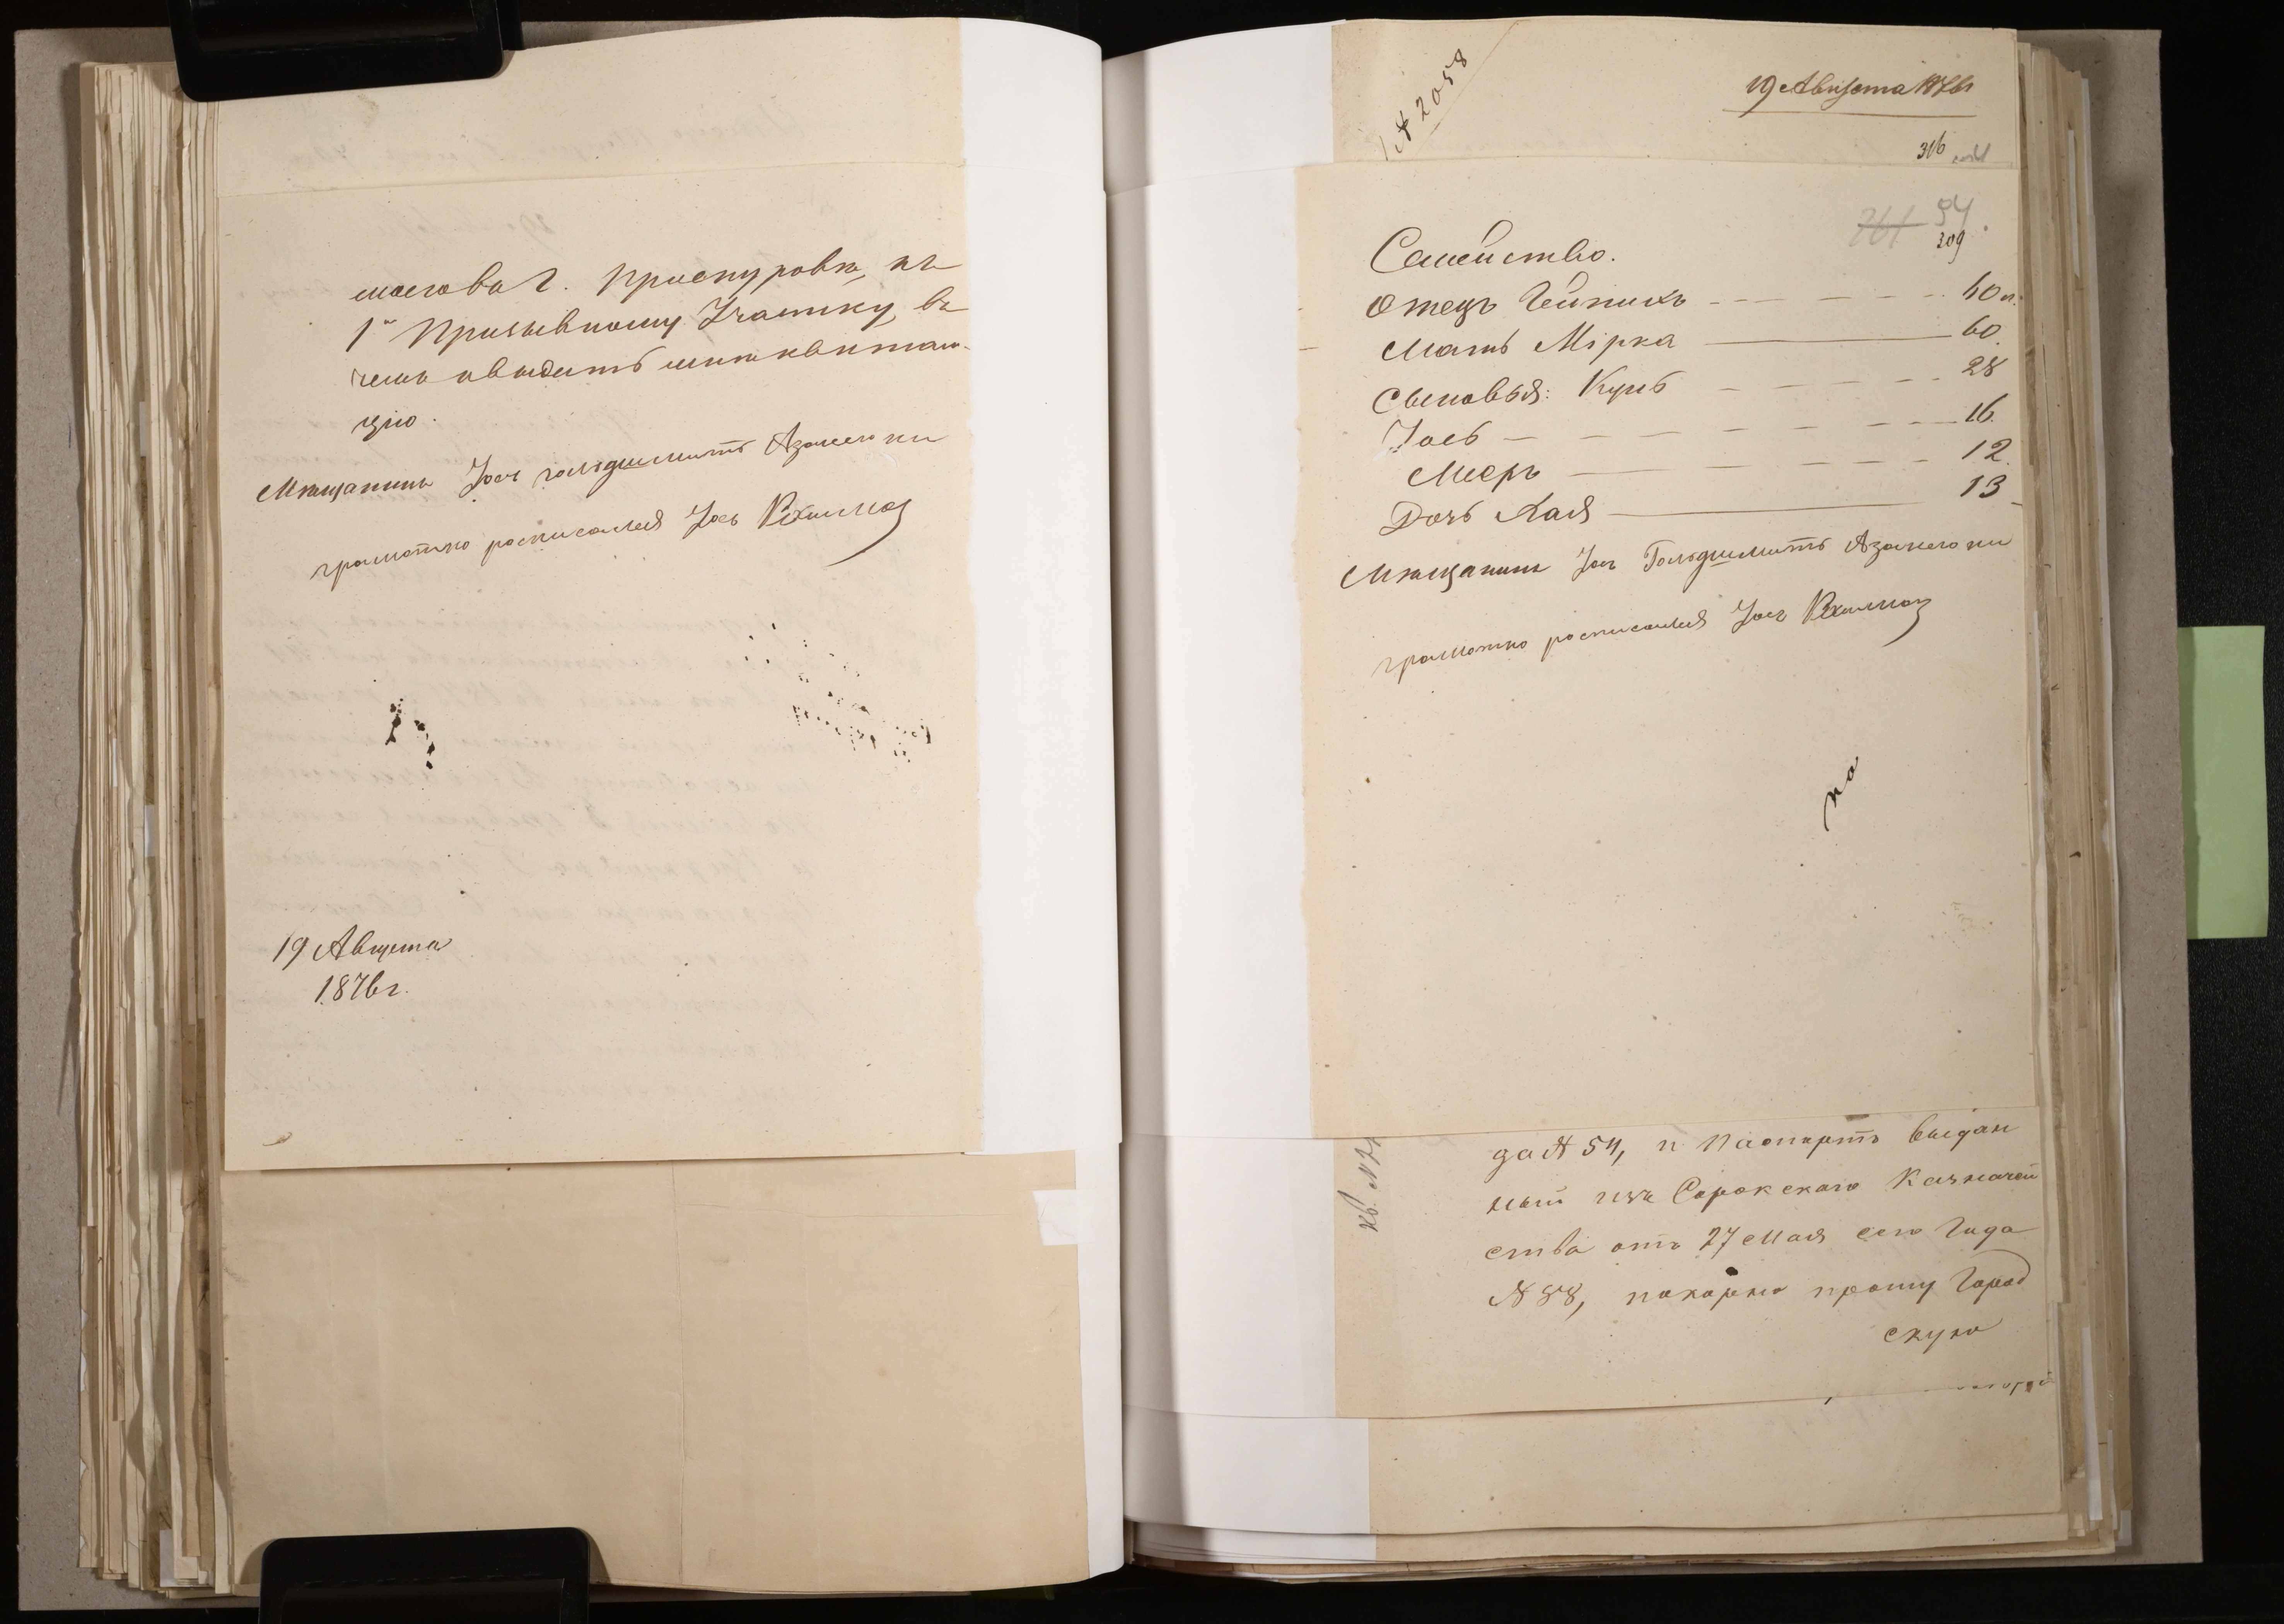 г. Проскурова, къ
1му Призывному Участку, въ
чемъ и выдать мнѣ квитан-
цію.
Мѣщанинъ Іось Гольдшмитъ А за него не
грамотно росписался Іось
19 Августа
1876 г.
№ 2058
19 Августа 1876 г
316
261 54
309
Семейство.
Отецъ Гейнихъ - - - - - 60 л.
Мать Мірка 60.
Сыновья: Кунь - - - - - 28
Іось - - - - - - - 16.
Мееръ - - - - - - 12.
Дочь Хая 13
Мѣщанинъ Іось Гольдшмитъ А за него не
грамотно росписался Іось
на
да № 54, и Паспортъ выдан
ный изъ Сорокскаго Казначей
ства отъ 27 Мая сего Года
№ 88, покорно прошу Город
скую